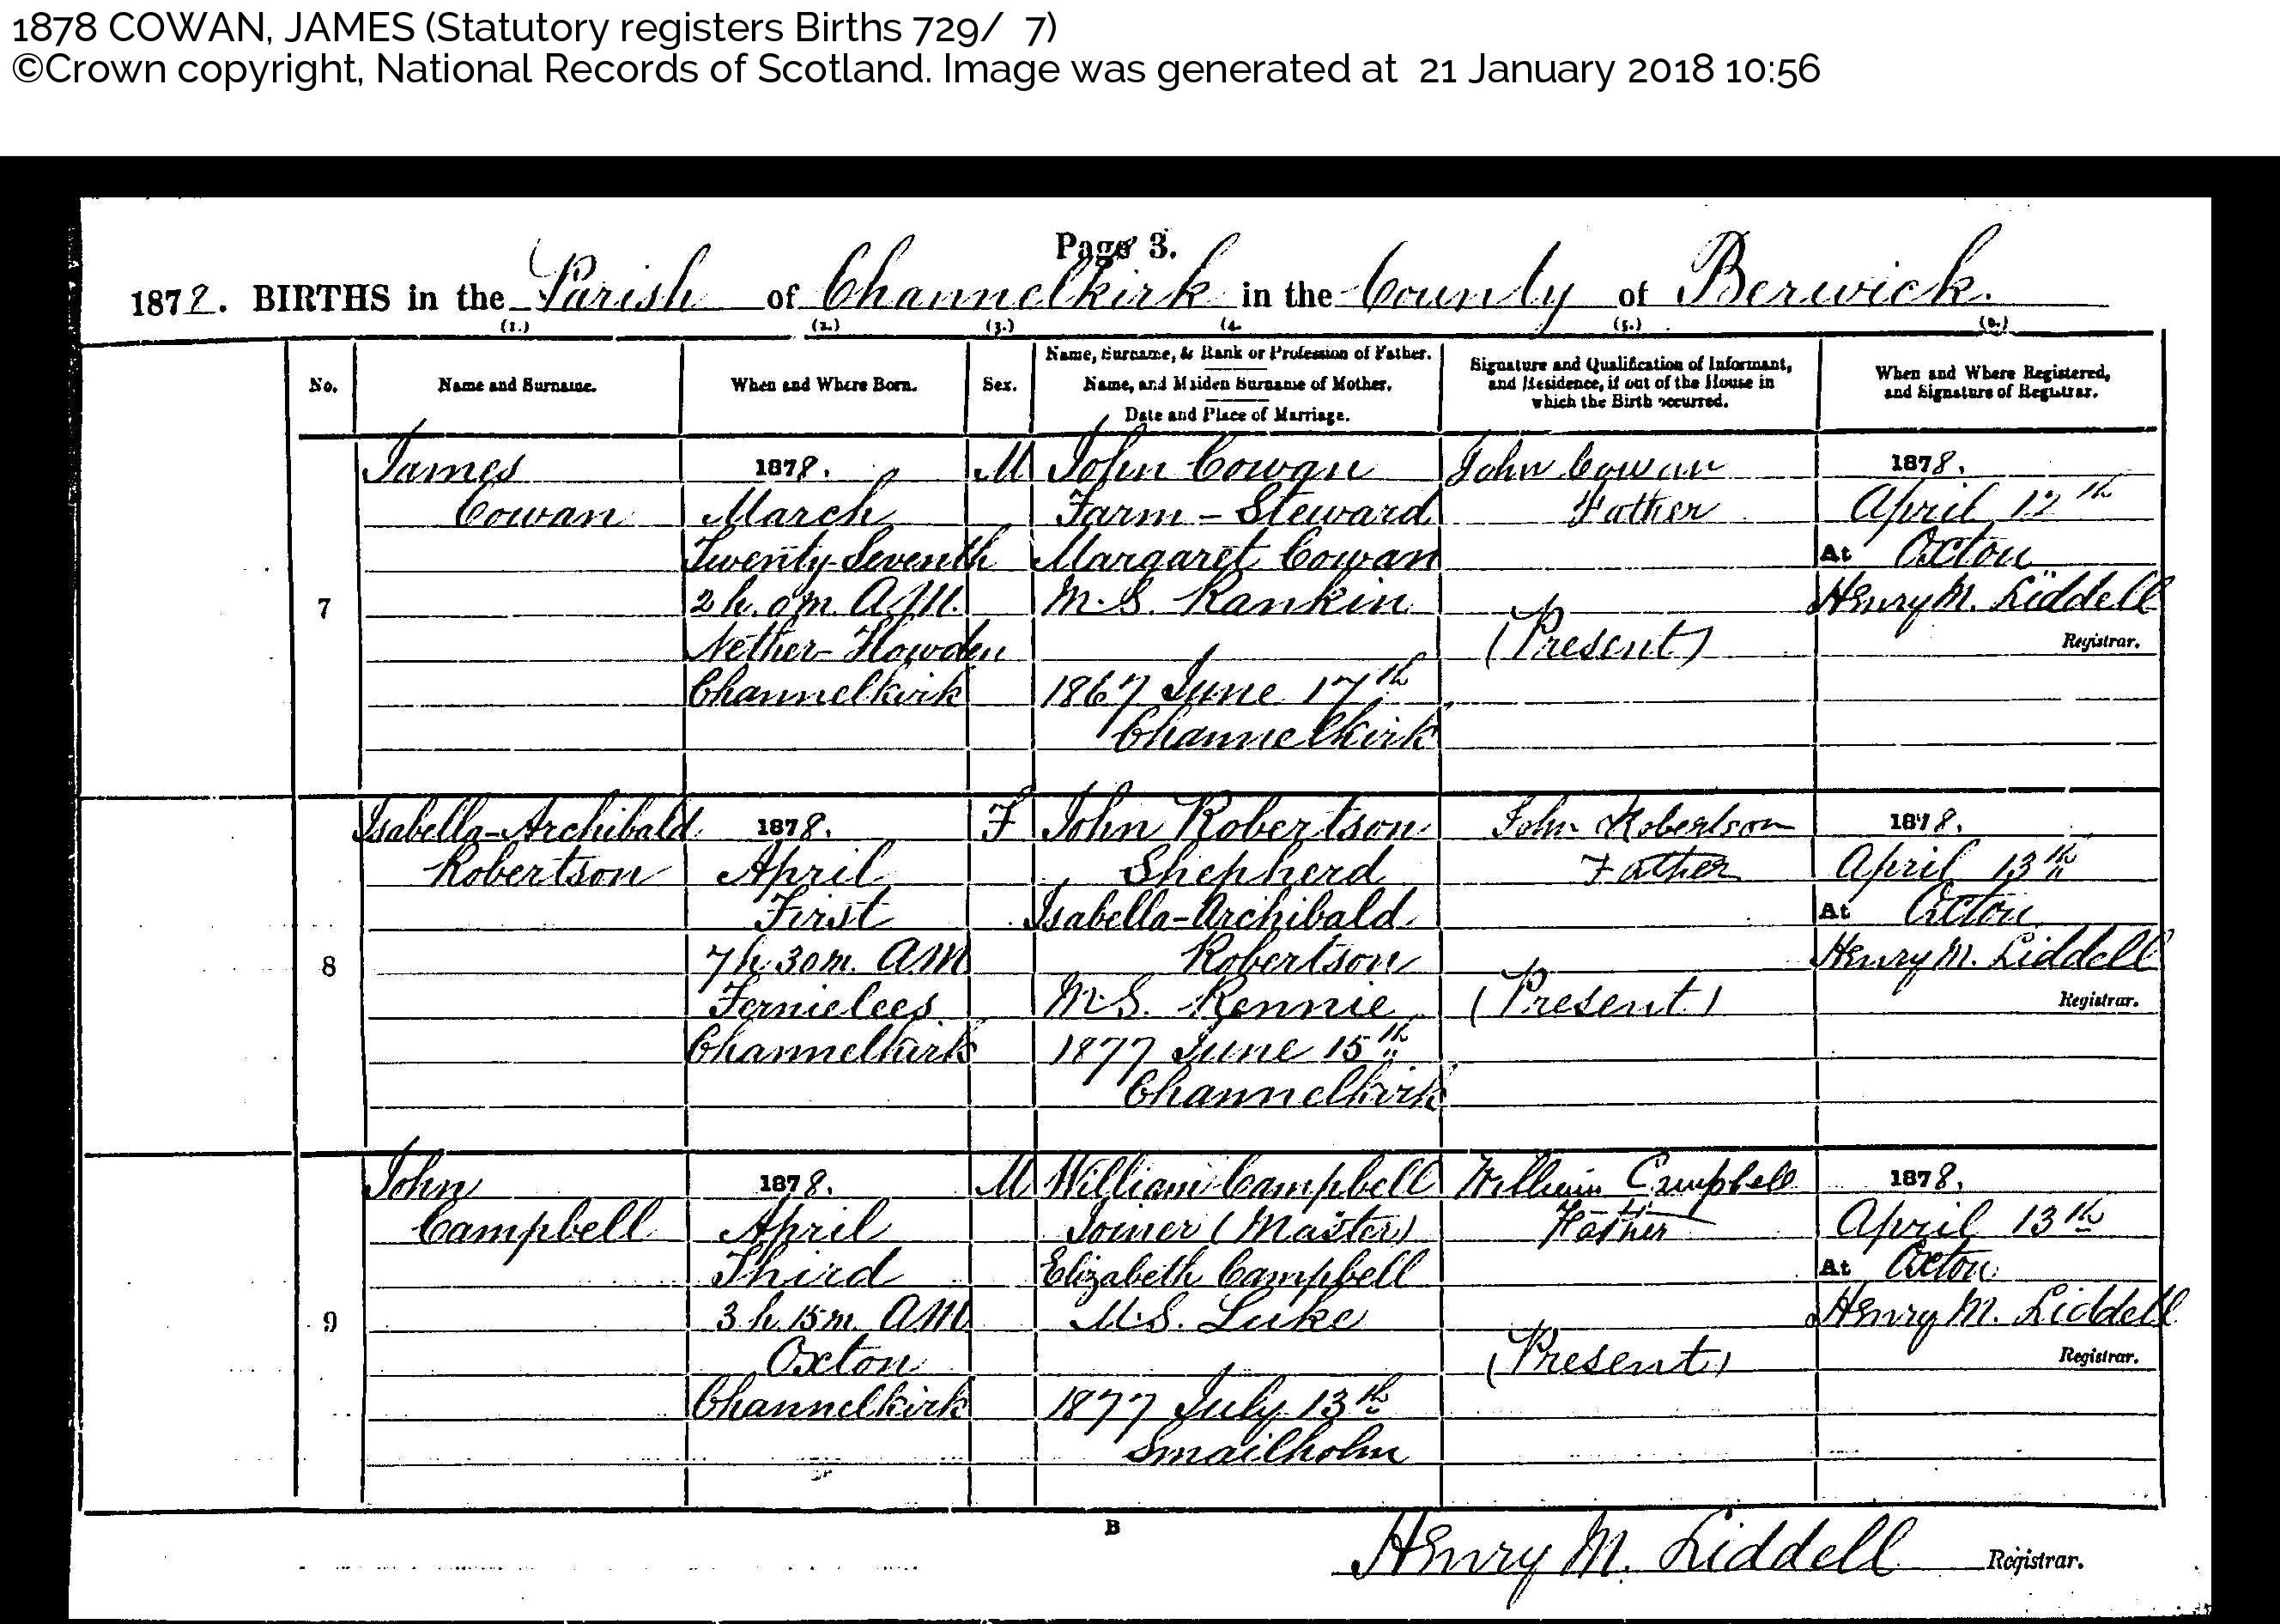 1878 COWAN, JAMES (Statutory registers Births 729/ 7)
©Crown copyright, National Records of Scotland. Image was generated at 21 January 2018 10:56
Page 3.
1878. BIRTHS in the Parish of Channelkirk in the County of Berwick.
(1.) (2.) (3.) (4. (5.) (6.)
No.
Name and Surname.
When and Where Born.
Sex.
Name, Surname, & Rank or Profession of Father.
Name, and Maiden Surname of Mother.
Date and Place of Marriage.
Signature and Qualification of Informant,
and Residence, if out of the House in
which the Birth occurred.
When and Where Registered,
and Signature of Registrar.
7
James
Cowan
1878.
March
Twenty-Seventh
2 h. 0 m. A.M.
Nether-Howden
Channelkirk
M
John Cowan
Farm-Steward
Margaret Cowan
M.S. Rankin
1867 June 17th
Channelkirk
John Cowan
Father
(Present)
1878.
April 12th
At Oxton
Henry M. Liddell
Registrar.
8
Isabella-Archibald
Robertson
1878.
April
First
7 h 30 m. AM
Fernielees
Channelkirk
F
John Robertson
Shepherd
Isabella-Archibald
Robertson
M.S. Rennie
1877 June 15th
Channelkirk
John Robertson
Father
(Present)
1878.
April 13th
At Oxton
Henry M. Liddell
Registrar.
9
John
Campbell
1878.
April
Third
3 h. 15 m. AM
Oxton
Channelkirk
M
William Campbell
Joiner (Master)
Elizabeth Campbell
M.S. Luke
1877 July 13th
Smailholm
William Campbell
Father
(Present)
1878.
April 13th
At Oxton
Henry M. Liddell
Registrar.
B
Henry M. Liddell Registrar.